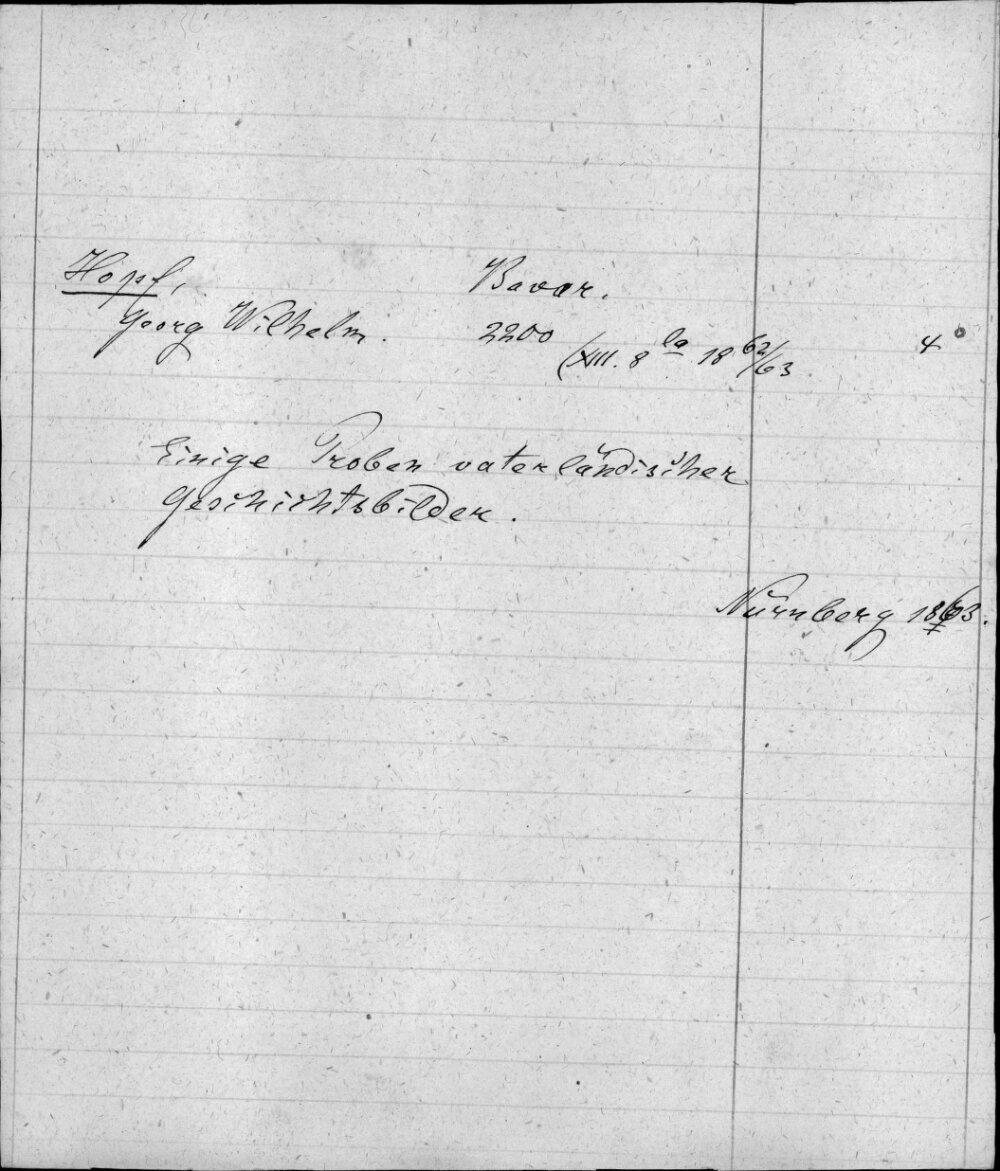 Hopf, Bavar.
Georg Wilhelm. 2200 (XIII. 8 la 18 62/63 4°
Einige Proben vaterländischer
Geschichtsbilder.
Nürnberg 1863.